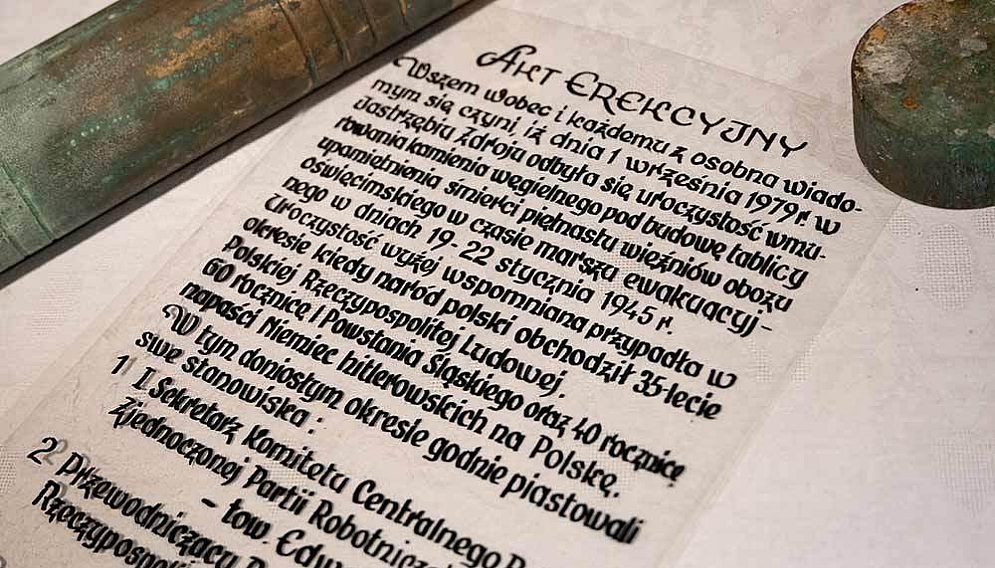 Akt Erekcyjny
Wszem wobec i każdemu z osobna wiado-
mym się czyni, iż dnia 1 września 1979 r. w
Jastrzębiu Zdroju odbyła się uroczystość wmu-
rowania kamienia węgielnego pod budowę tablicy
upamiętnienia śmierci piętnastu więźniów obozu
oświęcimskiego w czasie marszu ewakuacyj-
nego w dniach 19-22 stycznia 1945 r.
Uroczystość wyżej wspomniana przypadła w
okresie kiedy naród polski obchodził 35-lecie
Polskiej Rzeczypospolitej Ludowej,
60 rocznicę I Powstania Śląskiego oraz 40 rocznicę
napaści Niemiec hitlerowskich na Polskę.
W tym doniosłym okresie godnie piastowali
swe stanowiska:
1 I Sekretarz Komitetu Centralnego
Zjednoczonej Partii
- tow.
2 Przewodniczący